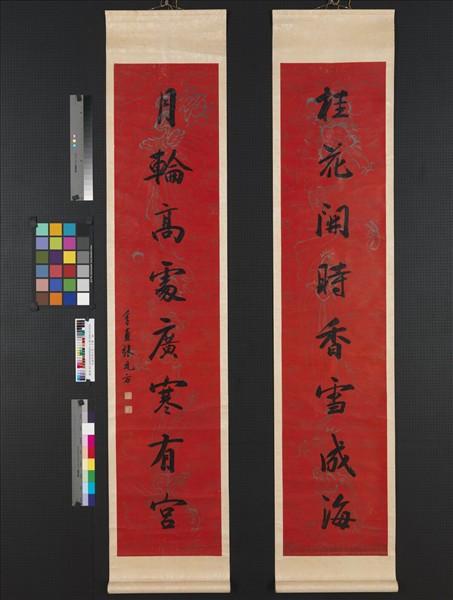 桂花開時香雪成海
月輪高處廣寒有宮
張元方